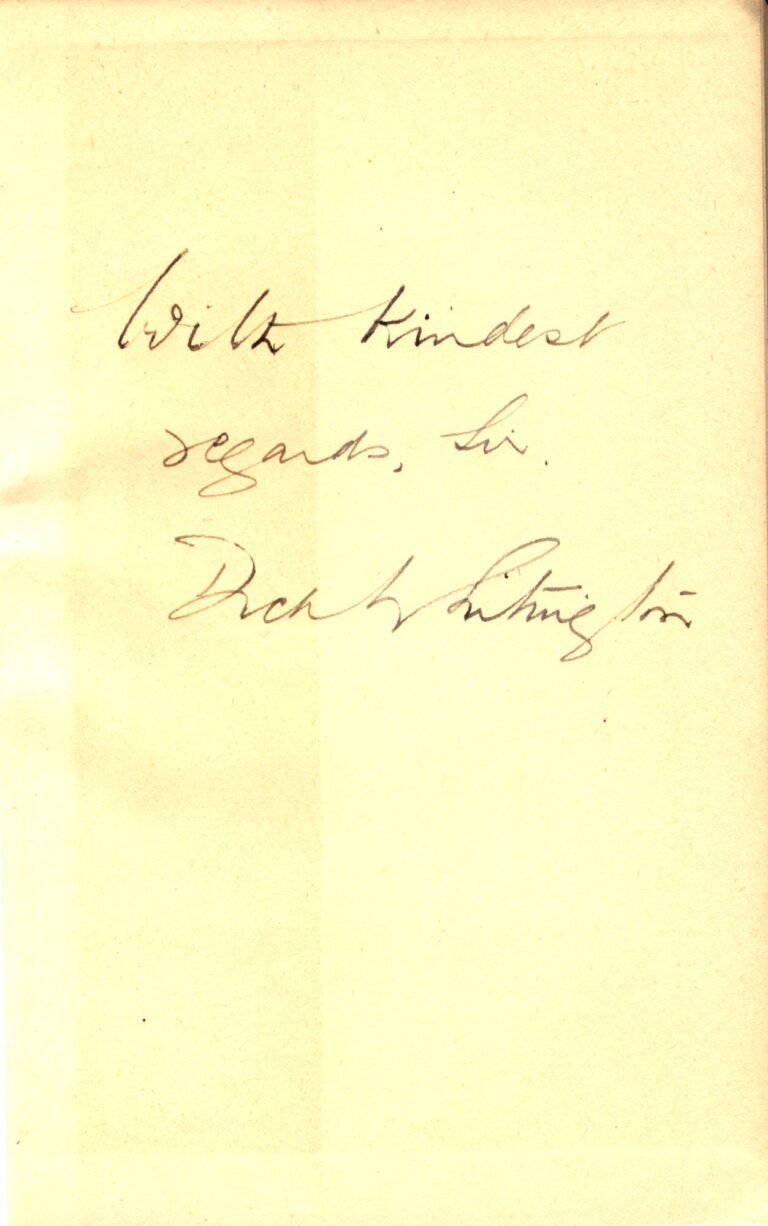 With kindest
regards, Sir.
Dick Whittington